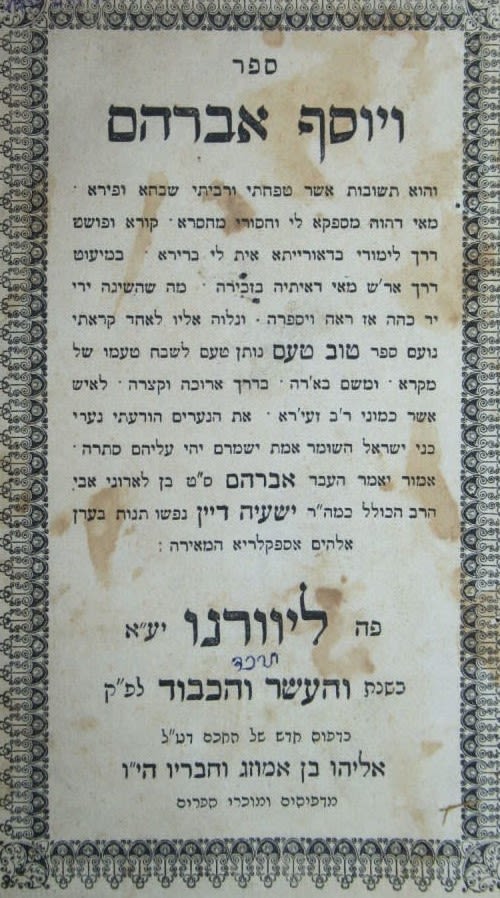 ספר
ויוסף אברהם
והוא תשובות אשר טפחתי ורביתי שבתא ופירא ׳
מאי דהוה מספקא לי וחסורי מחסרא ׳ קורא ופושט
דרך לימודי בדאורייתא אית לי ברירא ׳ במיעוט
דרך אר״ש מאי דאיתיה בזכירה ׳ מה שהשיגה ידי
יד כהה אז ראה ויספרה ׳ ונלוה אליו לאחד קראתי
נועם ספר טוב טעם נותן טעם לשבח טעמו של
מקרא ׳ ומשם בא׳רה ׳ בדרך ארוכה וקצרה ׳ לאיש
אשר כמוני ר׳ב זעי׳רא ׳ את הנערים הורעתי נערי
בני ישראל השומר אמת ישמרם יהי עליהם סתרה ׳
אמור יאמר העבד אברהם ס״ט בן לאדוני אבי
הרב הכולל כמה״ר ישעיה דיין נפשו תנוח בעדן
אלהים אספקלריא המאירה :
פה ליוורנו יע״א
תרכד
בשנת והעשר והכבוד לפ״ק
בדפוס קדש של החכם דעו״ל
אליהו בן אמוזג וחבריו הי״ו
מדפיסים ומוכרי ספרים